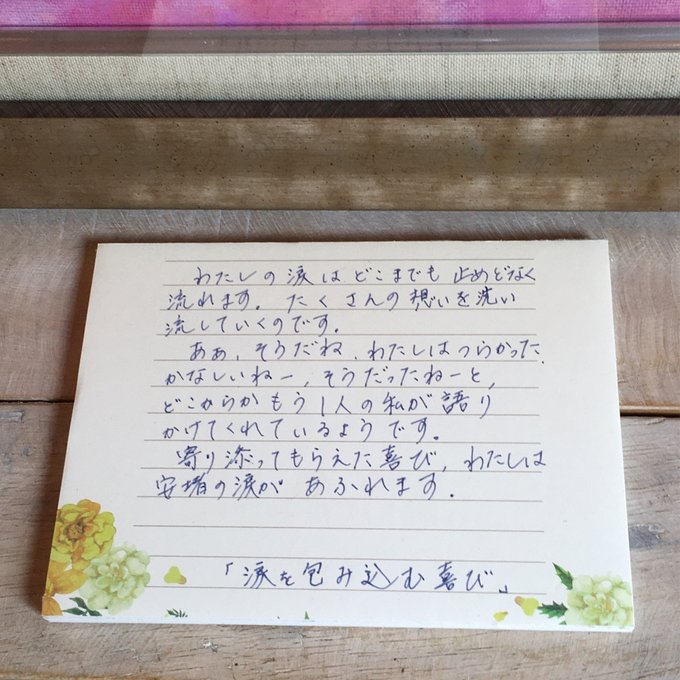 わたしの涙はどこまでも止めどなく
流れます。たくさんの想いを洗い
流していくのです。
ああ、そうだね、わたしはつらかった、
かなしいねー、そうだったねーと、
どこからかもう1人の私が語り
かけてくれているようです。
寄り添ってもらえた喜び、わたしは
安堵の涙があふれます。
「涙を包み込む喜び」